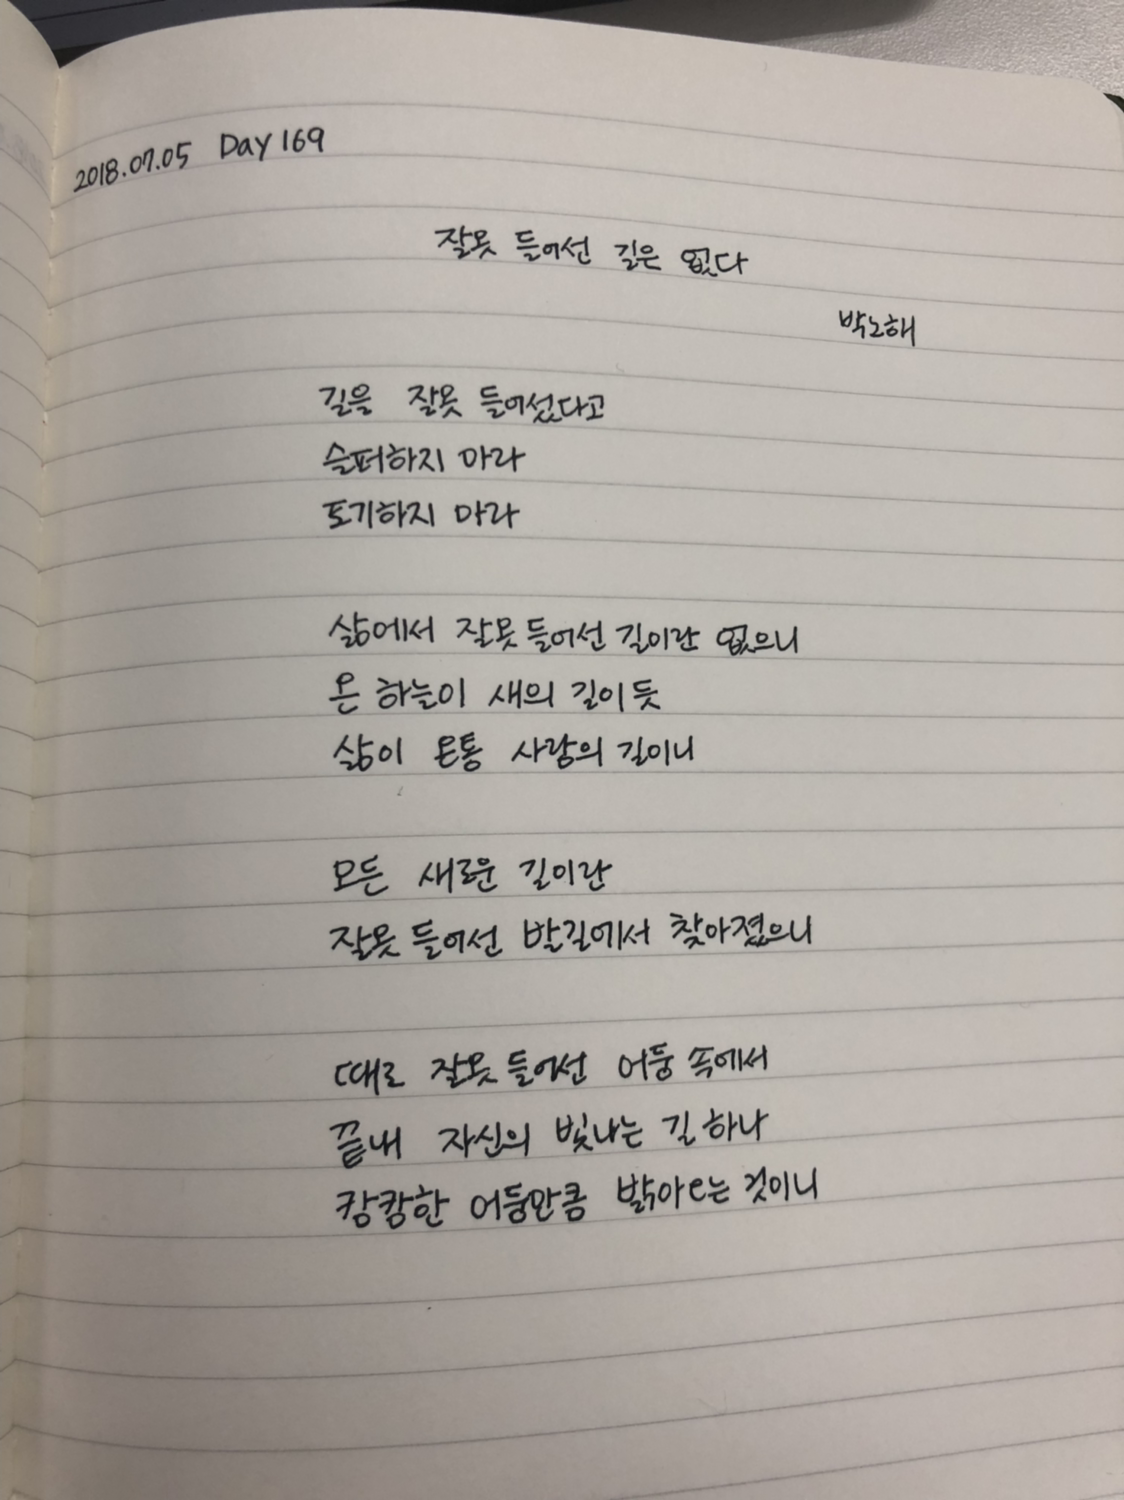 2018.07.05 Day 169
잘못 들어선 길은 없다
박노해
길을 잘못 들어섰다고
슬퍼하지 마라
포기하지 마라
삶에서 잘못 들어선 길이란 없으니
온 하늘이 새의 길이듯
삶이 온통 사람의 길이니
모든 새로운 길이란
잘못 들어선 발길에서 찾아졌으니
때로 잘못 들어선 어둠 속에서
끝내 자신의 빛나는 길 하나
캄캄한 어둠만큼 밝아오는 것이니